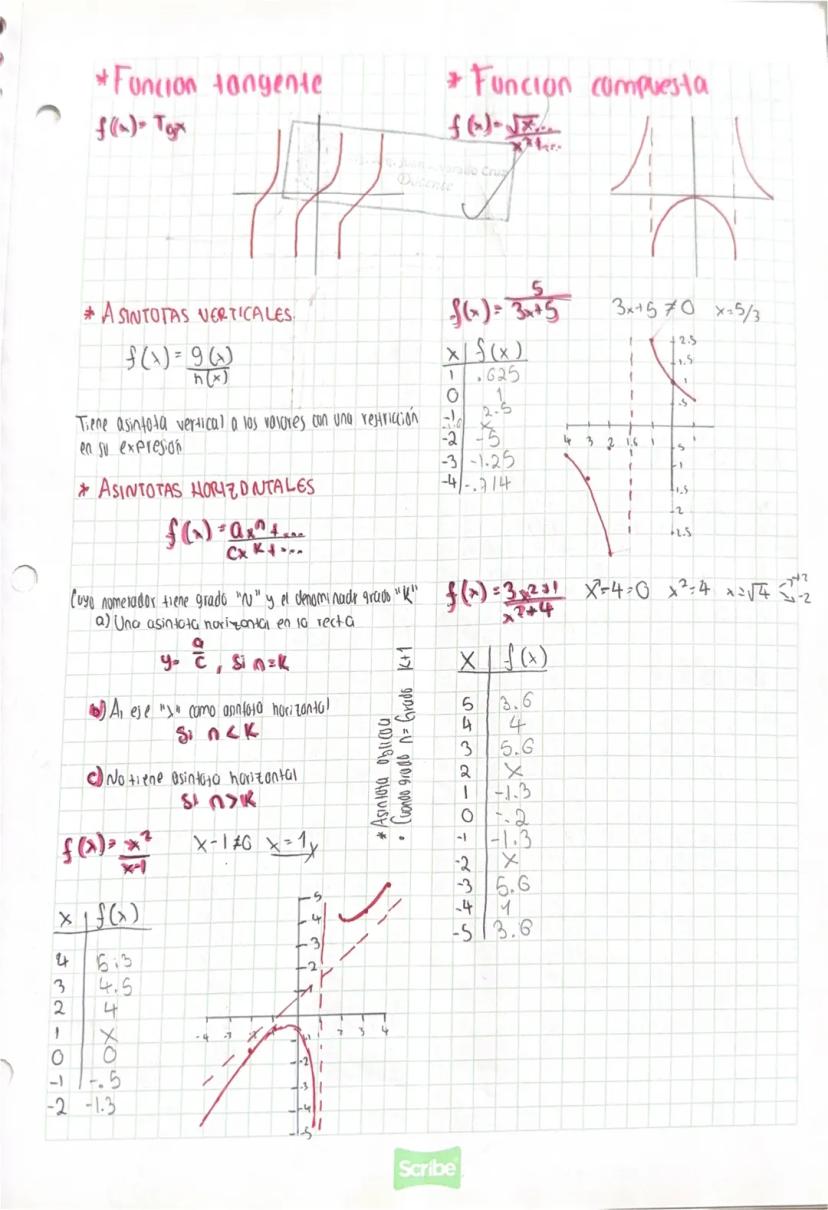 * Funcion tangente
f(x)= Tgx
* Funcion compuesta
f(x)= √x...
x²+...
Docente
* ASINTOTAS VERTICALES.
f(x) = g(x)
h(x)
Tiene asintota vertical a los valores con una restricción
en su expresión
* ASINTOTAS HORIZONTALES
f(x) = axⁿ+...
cxᴷ+...
Cuyo numerador tiene grado "N" y el denominado grado "K"
a) Una asintota horizontal en la recta
y= a/c , Si n=K
b) Al eje "x" como asintota horizontal
Si n<K
c) No tiene asintota horizontal
Si n>K
* Asintota oblicua
• Cuando grado n= Grado K+1
f(x)= x²
x-1
x-1≠0 x=1
x f(x)
4 5.3
3 4.5
2 4
1 X
0 0
-1 -.5
-2 -1.3
5
4
3
2
1
-4
2 3 4
-2
-3
-4
-5
f(x)= 5
3x+5
3x+5≠0 x=5/3
x f(x)
1 .625
0 1
-1 2.5
-1.6 X
-2 -5
-3 -1.25
-4 -.714
2.5
1.5
1
.5
4 3 2 1.6 1
.5
-1
1.5
-2
2.5
f(x) = 3x²+1
x²+4
x²-4=0 x²=4 x=√4 +2
-2
x f(x)
5 3.6
4 4
3 5.6
2 X
1 -1.3
0 -.2
-1 -1.3
-2 X
-3 5.6
-4 4
-5 3.6
Scribe